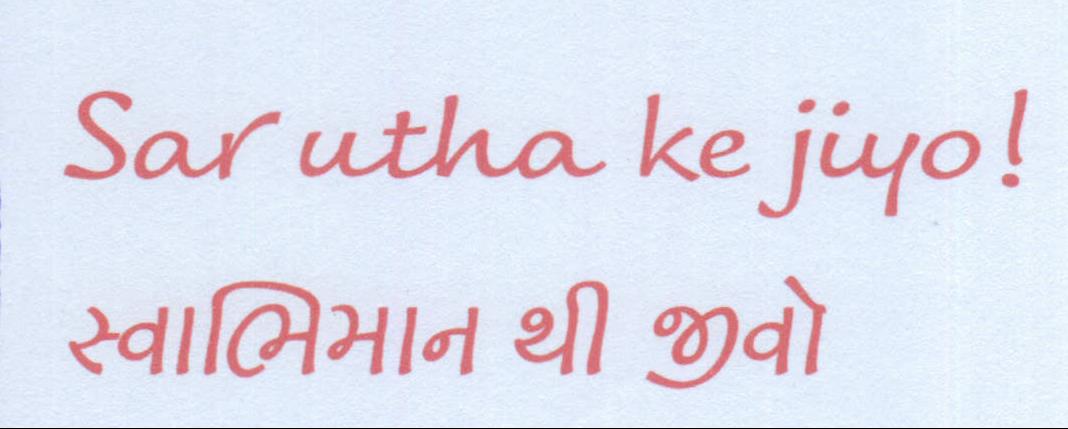 Sar utha ke jiyo!
સ્વાભિમાન થી જીવો